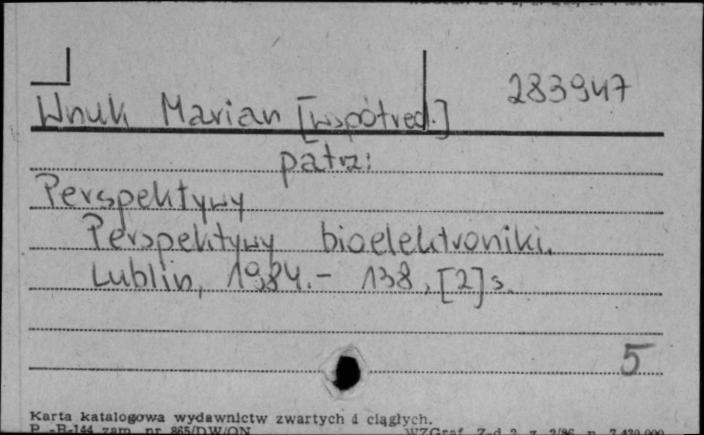 283947
Wnuk Marian [współred.]
patrz:
Perspektywy
Perspektywy bioelektroniki.
Lublin, 1984.- 138, [2] s.
5
Karta katalogowa wydawnictw zwartych i ciągłych.
P.-B-144 zam. nr 865/DW/ON
WZGraf. Z-d 2, z. 2/86, n. 7.420.000